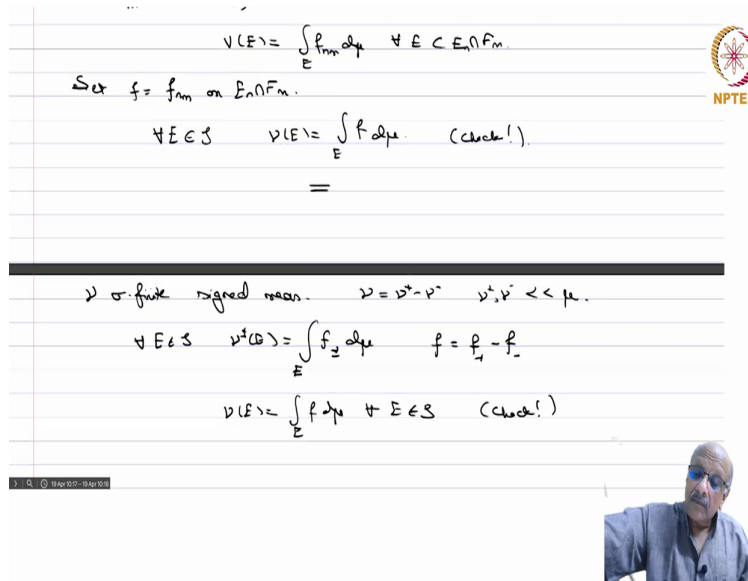 ν(E) = ∫_E f_nm dμ ∀ E ⊂ E_n ∩ F_m.
Set f = f_nm on E_n ∩ F_m.
NPTE
∀ E ∈ S ν(E) = ∫_E f dμ. (Check!).
=
ν σ-finite signed meas. ν = ν⁺ - ν⁻ ν⁺, ν⁻ << μ.
∀ E ∈ S ν^±(E) = ∫_E f_± dμ f = f_+ - f_-
ν(E) = ∫_E f dμ ∀ E ∈ S (Check!)
19 Apr 10:17 – 19 Apr 10:18